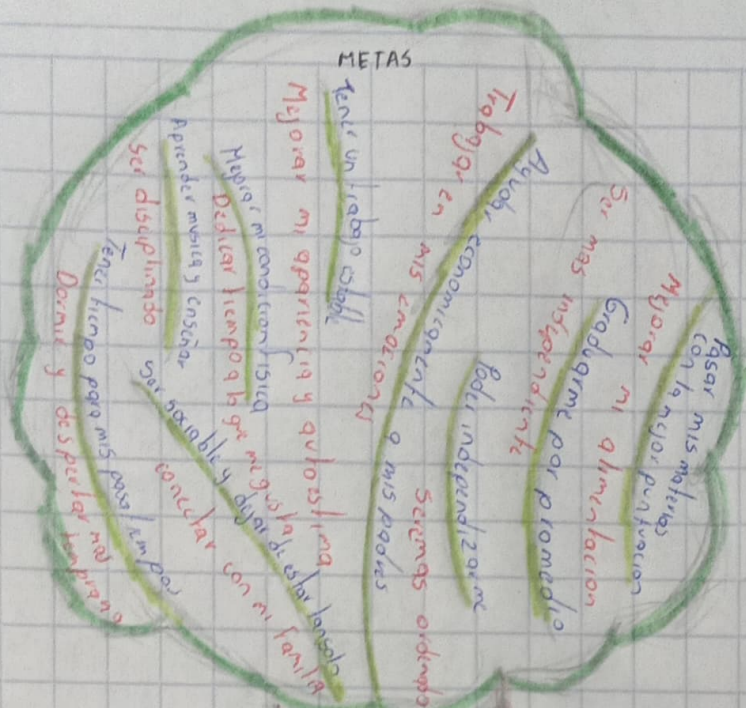 METAS
Pasar mis materias
con la mejor puntuacion
Mejorar mi alimentacion
Graduarme por promedio
Ser mas independiente
Poder independizarme
Ser mas ordenado
Ayudar economicamente a mis padres
Trabajar en mis emociones
Tener un trabajo estable
Mejorar mi apariencia y autoestima
Mejorar mi condicion fisica
Dedicar tiempo a lo que me gusta
Aprender musica y enseñar
Ser disciplinado
Ser sociable y dejar de estar tan solo
conectar con mi familia
Tener tiempo para mis pasatiempos
Dormir y despertar mas temprano